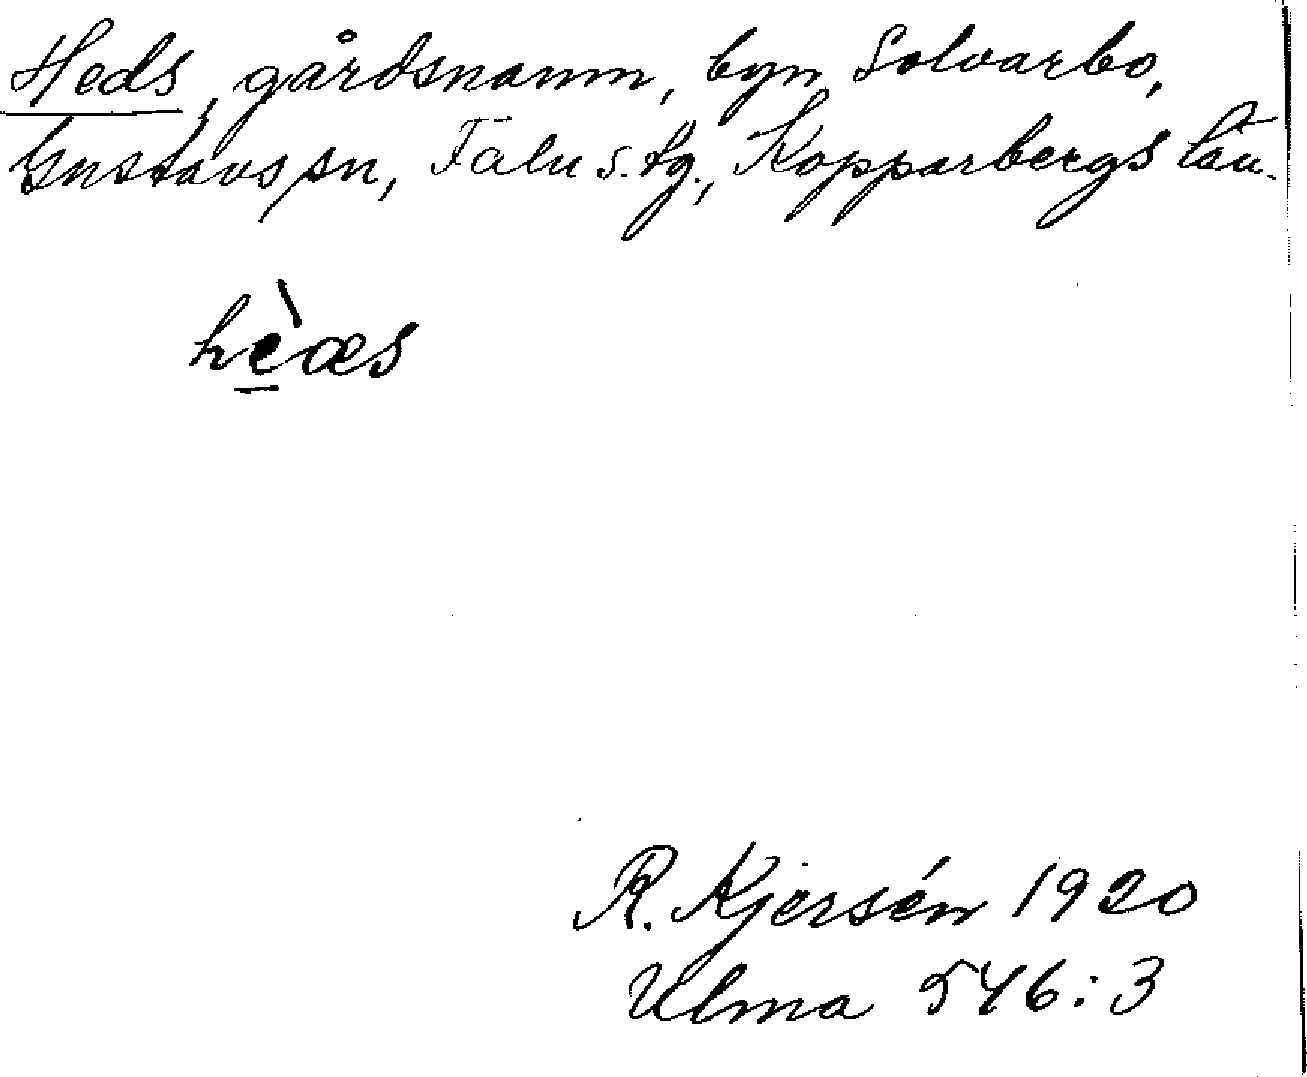 Heds, gårdsnamn, byn Solvarbo,
Gustavs sn, Falu s. tg., Kopparbergs län.
hèæs
R. Kjersén 1920
Ulma 546:3